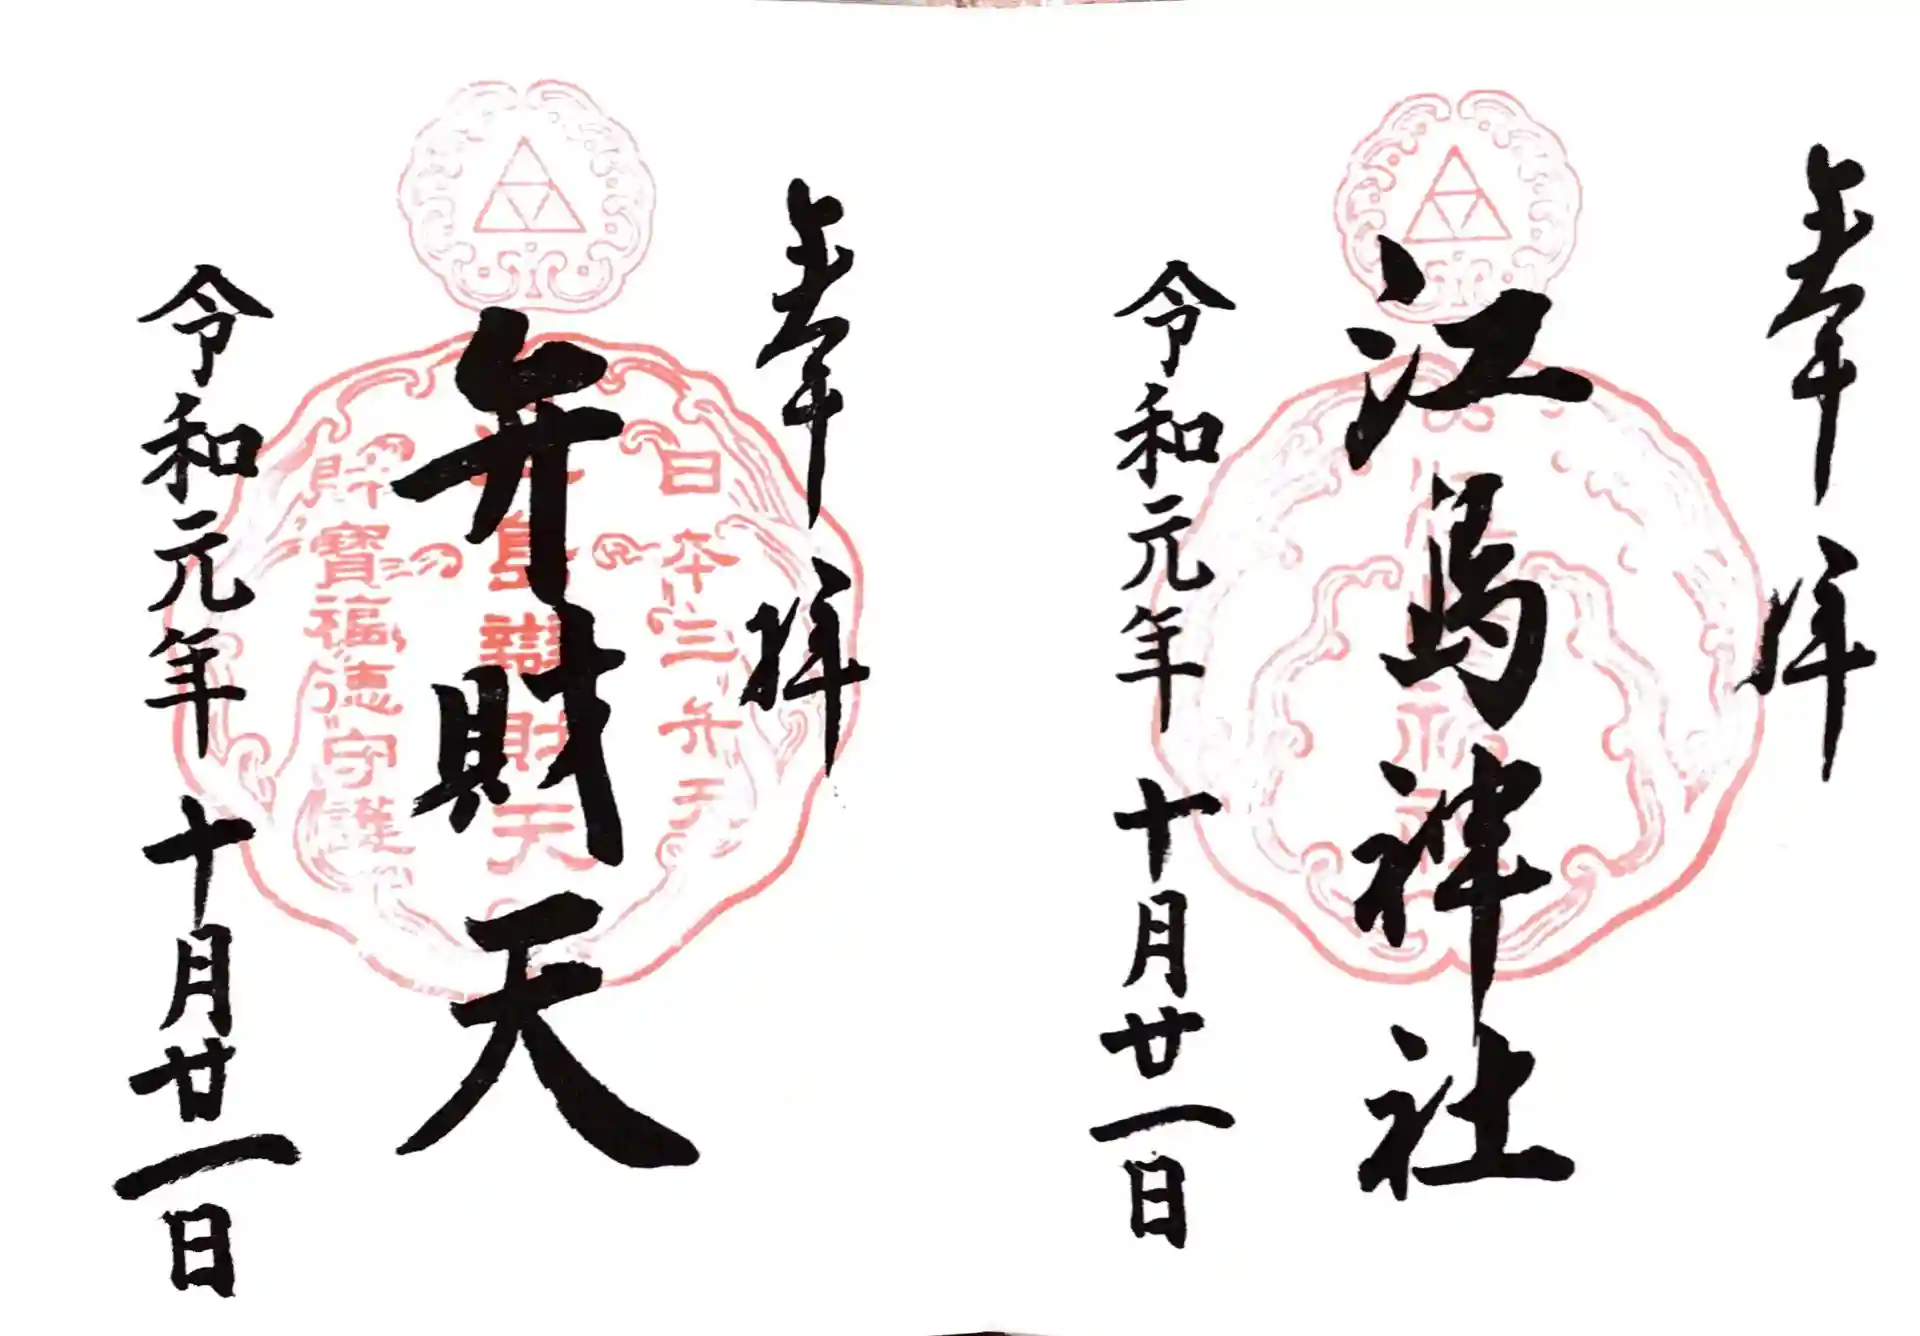 奉拝
江島神社
令和元年 十月廿一日
奉拝
弁財天
日本三弁天
江島辯財天
財寶福徳守護
令和元年 十月廿一日